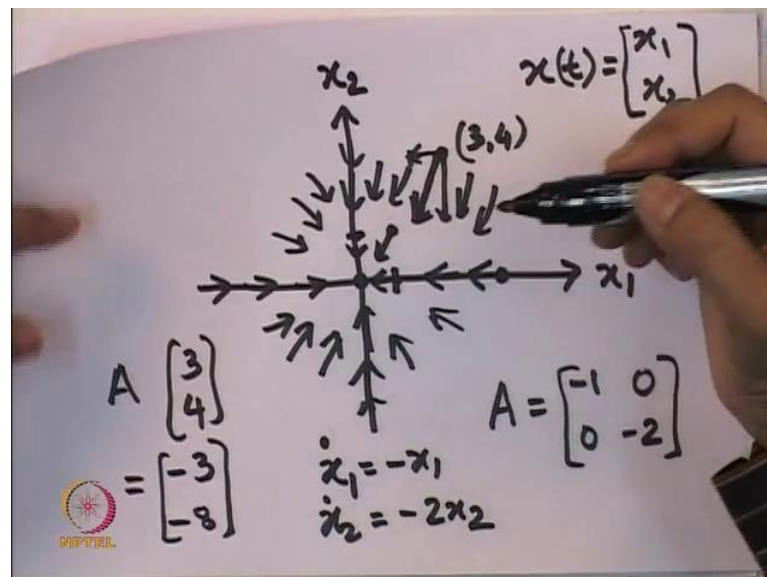 x(t) = [x₁
x₂]
x₂
(3,4)
x₁
A [3
4]
= [-3
-8]
ẋ₁ = -x₁
ẋ₂ = -2x₂
A = [-1 0
0 -2]
NPTEL